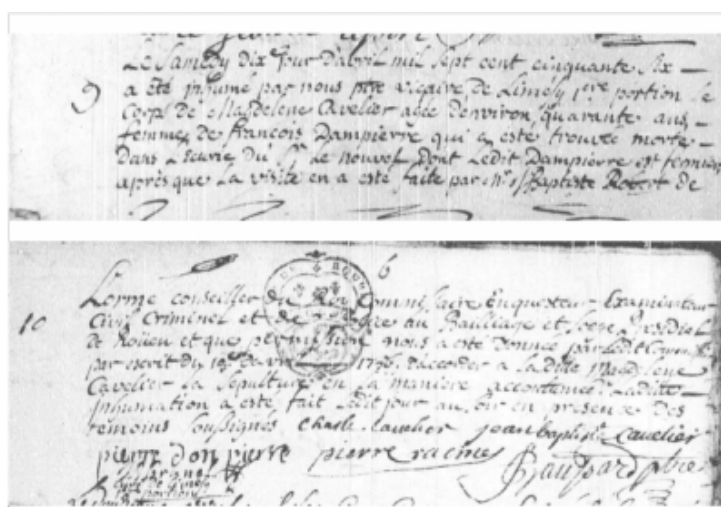 Le Samedy dix jour d'abril mil sept cent cinquante six
9
a été inhumé par nous ptre vicaire de Limésy 1ere portion le
Corps de Magdelene Cavelier agée d'environ quarante ans
femme de françois Dampierre qui a esté trouvée morte
dans L'Ecurie du Sr de nouvel dont Ledit Dampierre est fermier
après que La visite en a esté faite par Mr Baptiste Robert de
6
10
Lorme conseiller du Roy Commissaire Enquesteur Examinateur
Civil Criminel et de au Bailliage et Siege Presidial
de Roüen et que permission nous a esté donnée par Ledit
par escrit du 1756 d'accorder a Ladite Magdelene
Cavelier La Sepulture en La maniere accoutumée Laditte
Inhumation a esté fait Ledit jour au soir en presence des
temoins soussignés Charle Cavelier jean baptiste Cavelier
pierre don pierre pierre racine